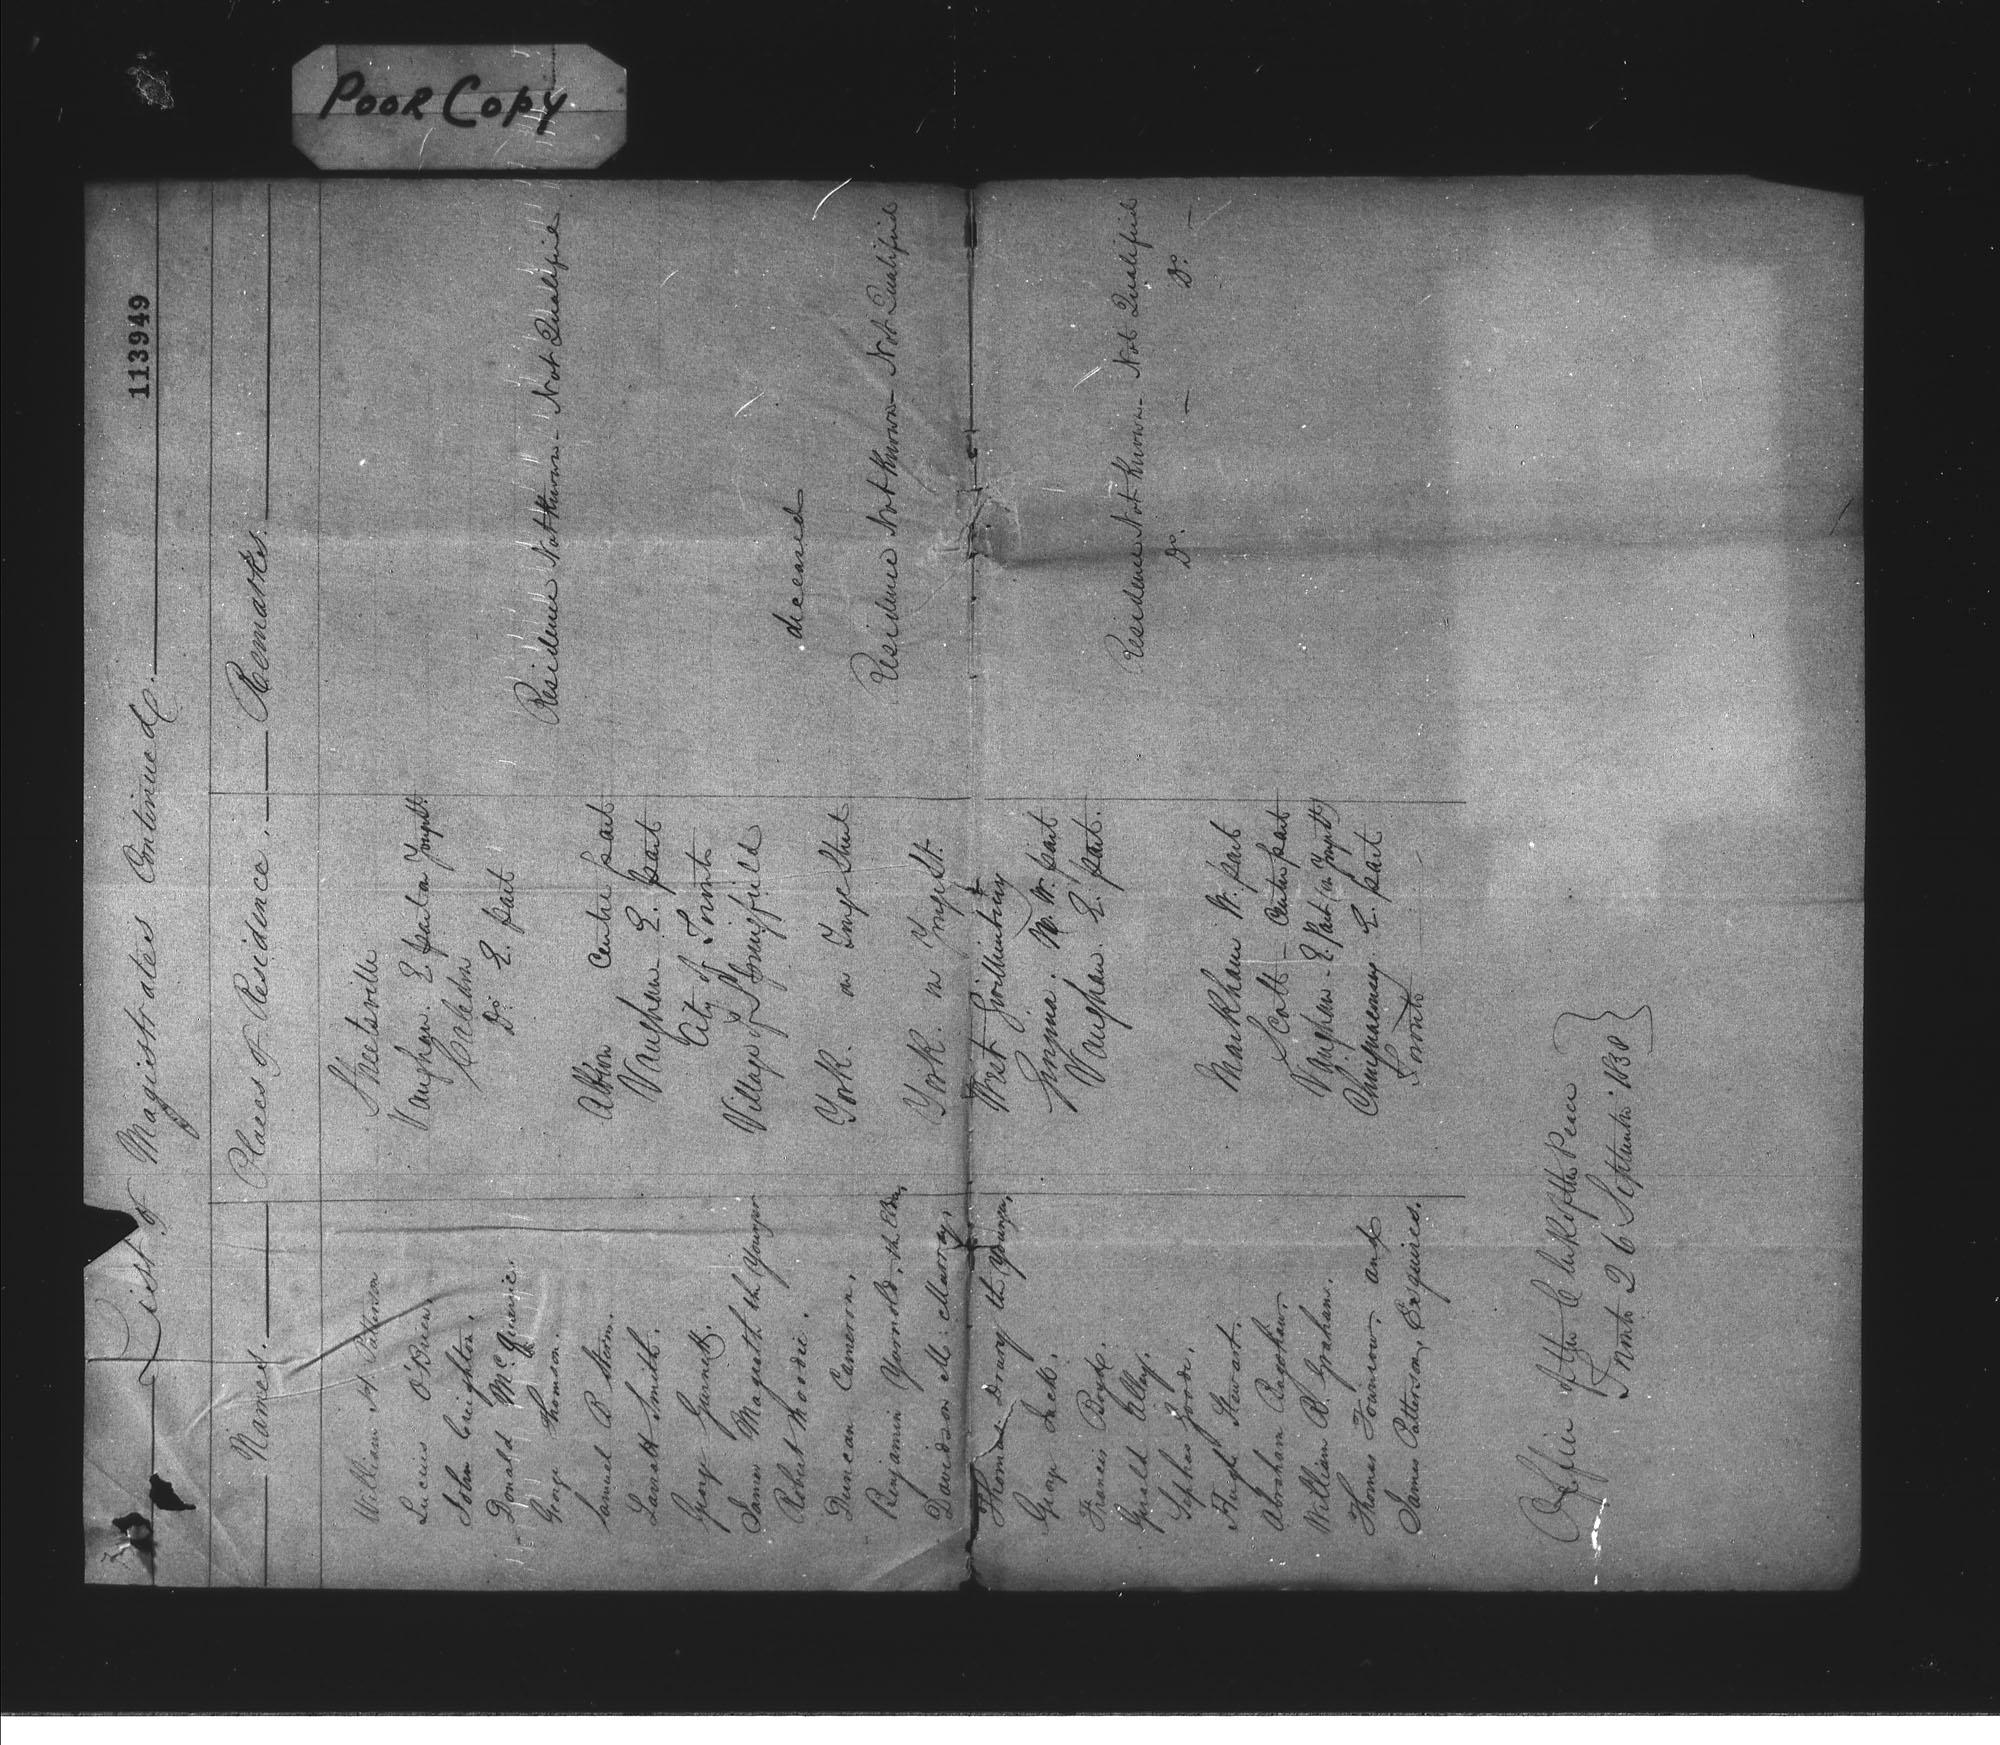 POOR COPY
113949
List of Magistrates Continued
Names. Places of Residence. Remarks.
William H. Patterson Streetsville
Lucius O'Brien. Vaughan. E. part on Yonge St.
John Creighton. Caledon
Donald McQuarrie. Do. E. part
George Thomson. Residence Not Known - Not Qualified
Samuel B Sterne. Albion Centre part
Larratt Smith. Vaughan - E. part
George Gurnett. City of Toronto
James Magrath the Younger Village of Springfield
Robert Moodie. deceased
Duncan Cameron. York. on Yonge Street
Benjamin Yarnold, Residence Not Known - Not Qualified
Davidson M. Murray. York. on Yonge St.
Thomas Drury the Younger, West Gwillimbury
George Lack. N. W. part
Francis Boyd. Vaughan. E. part.
Gerald Alley. Residence Not Known - Not Qualified
Sephas Goode. Do. - Do. -
Hugh Stewart. Markham W. part
Abraham Bagshaw. Scott - Centre part
William B. Graham. Vaughan - E. Part (on Yonge St)
Thomas Fournier. and Chinguacousy. E. part
James Patterson, Esquires. Toronto
Office of the Clerk of the Peace
Toronto 26 September 1838